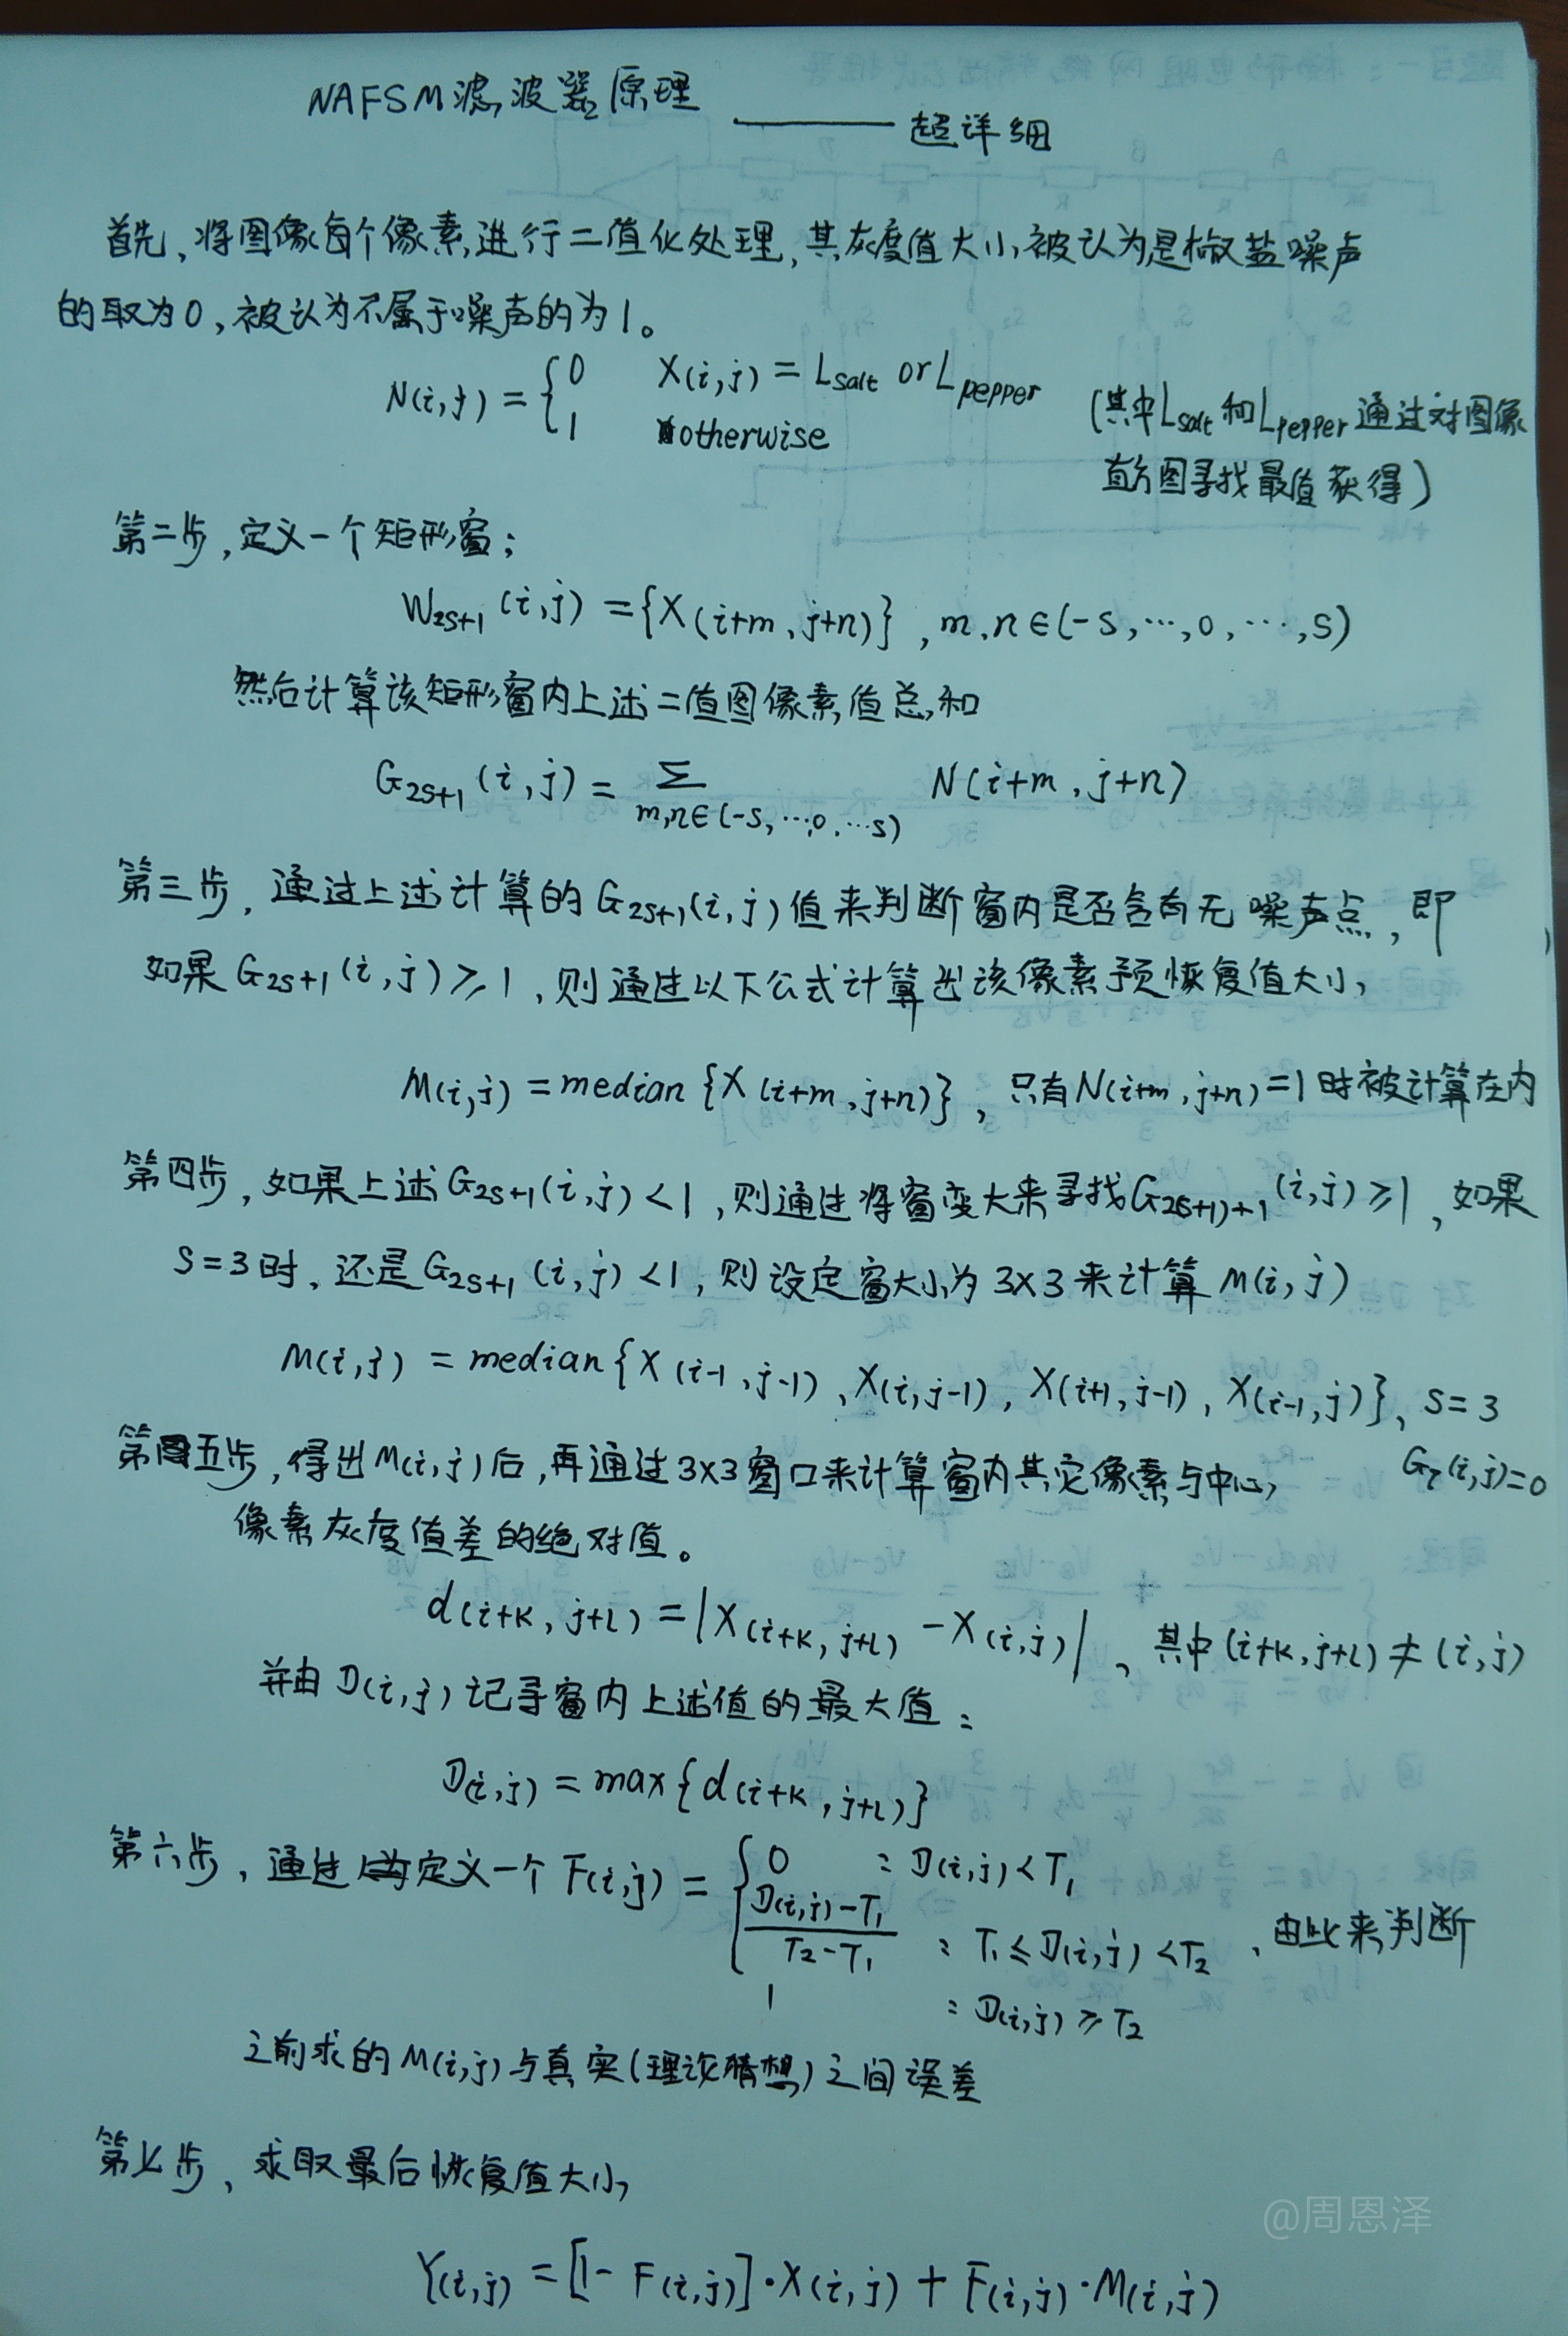 NAFSM滤波器原理
——— 超详细
首先,将图像每个像素进行二值化处理,其灰度值大小被认为是椒盐噪声
的取为0,被认为不属于噪声的为1。
N(i,j) = { 0 X(i,j) = Lsalt or Lpepper
1 otherwise
(其中Lsalt和Lpepper通过对图像
直方图寻找最值获得)
第二步,定义一个矩形窗;
W2s+1(i,j) = {X(i+m,j+n)}, m,n∈(-s,…,0,…,s)
然后计算该矩形窗内上述二值图像素值总和
G2s+1(i,j) = Σ m,n∈(-s,…,0,…s) N(i+m,j+n)
第三步,通过上述计算的G2s+1(i,j)值来判断窗内是否含有无噪声点,即
如果G2s+1(i,j)≥1,则通过以下公式计算出该像素预恢复值大小,
M(i,j) = median{X(i+m,j+n)}, 只有N(i+m,j+n)=1时被计算在内
第四步,如果上述G2s+1(i,j)<1,则通过将窗变大来寻找G2(s+1)+1(i,j)≥1,如果
s=3时,还是G2s+1(i,j)<1,则设定窗大小为3×3来计算M(i,j)
M(i,j) = median{X(i-1,j-1), X(i,j-1), X(i+1,j-1), X(i-1,j)}, s=3
G7(i,j)=0
第五步,得出M(i,j)后,再通过3×3窗口来计算窗内其它像素与中心
像素灰度值差的绝对值。
d(i+k,j+l) = |X(i+k,j+l) - X(i,j)|, 其中(i+k,j+l)≠(i,j)
并由D(i,j)记寻窗内上述值的最大值:
D(i,j) = max{d(i+k,j+l)}
第六步,通过定义一个F(i,j) = { 0 : D(i,j)<T1
(D(i,j)-T1)/(T2-T1) : T1≤D(i,j)<T2 ,由此来判断
1 : D(i,j)≥T2
之前求的M(i,j)与真实(理论猜想)之间误差
第七步,求取最后恢复值大小,
Y(i,j) = [1-F(i,j)]·X(i,j) + F(i,j)·M(i,j)
@周恩泽